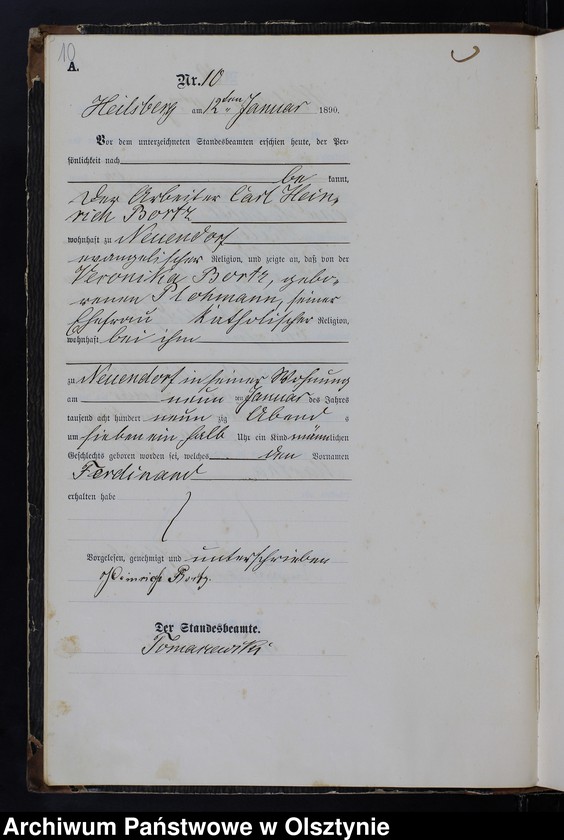 10
A.
Nr. 10
Heilsberg am 12ten Januar 1890.
Vor dem unterzeichneten Standesbeamten erschien heute, der Per-
sönlichkeit nach
be kannt,
der Arbeiter Carl Hein-
rich Bortz
wohnhaft zu Neuendorf
evangelischer Religion, und zeigte an, daß von der
Veronika Bortz, gebo-
renen Plohmann, seiner
Ehefrau katholischer Religion,
wohnhaft bei ihm
zu Neuendorf in seiner Wohnung
am neun ten Januar des Jahres
tausend acht hundert neun zig Abend s
um sieben ein halb Uhr ein Kind männlichen
Geschlechts geboren worden sei, welches den Vornamen
Ferdinand
erhalten habe
Vorgelesen, genehmigt und unterschrieben
Heinrich Bortz.
Der Standesbeamte.
Tomaszewski
Archiwum Państwowe w Olsztynie